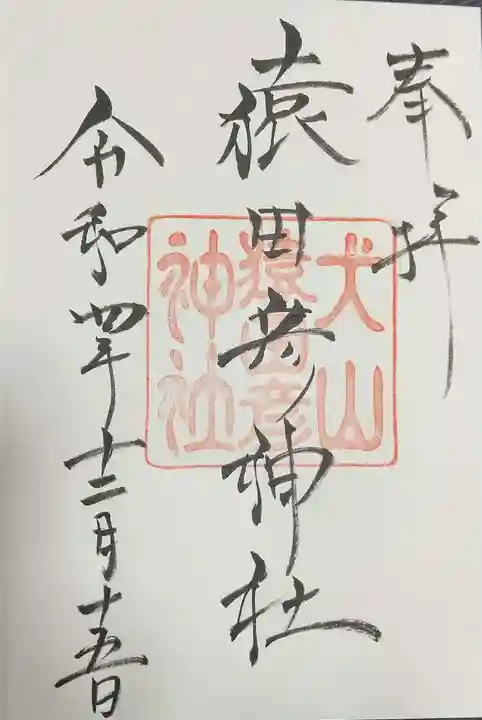 奉拝
猿田彦神社
令和四年十二月十五日
犬山
猿田彦
神社